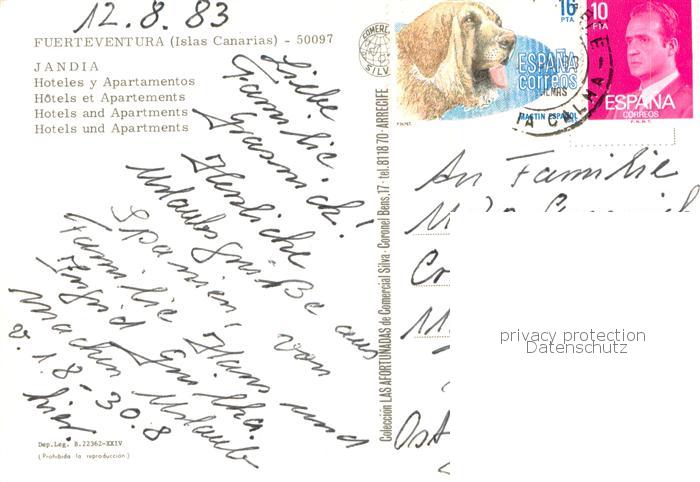 12.8.83
FUERTEVENTURA (Islas Canarias) - 50097
JANDIA
Hoteles y Apartamentos
Hôtels et Apartements
Hotels and Apartments
Hotels und Apartments
Liebe
Familie
Herzliche
Urlaubsgrüße aus
Spanien, von
Familie Hans und
Ingrid
machen Urlaub
v. 1.8-30.8
hier.
Dep. Leg. B.22362-XXIV
(Prohibida la reproducción)
Colección LAS AFORTUNADAS de Comercial Silva - Coronel Bens, 17 - tel. 811870 - ARRECIFE
COMERCIAL
SILVA
16 PTA
ESPAÑA
correos
MASTIN ESPAÑOL
F.N.M.T.
10 PTA
ESPAÑA
CORREOS
F.N.M.T.
An Familie
privacy protection
Datenschutz